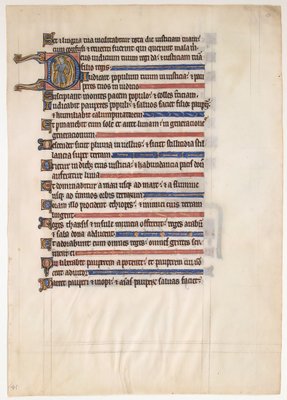 Set et lingua mea meditabitur tota die iusticiam tuam:
cum confusi et reveriti fuerint qui querunt mala m̅.
Deus iudicium tuum regi da: et iusticiam tuam
filio regis
Iudicare populum tuum in iusticia: et pau
peres tuos in iudicio
Suscipiant montes pacem populo: et colles iusticiam
Iudicabit pauperes populi: et salvos faciet filios paupm
et humiliabit calumpniatorem
Et pmanebit cum sole et ante lunam: in generatione et
generationem
Descendet sicut pluvia in vellus: et sicut stillicidia stil
lantia super terram
Orietur in dieb; eius iusticia: et habundantia pacis donec
auferatur luna
Et dominabitur a mari usq; ad mare: et a flumine
usq; ad terminos orbis terrarum
Coram illo procident ethiopes: et inimici eius terram
lingent
Reges tharsis et insule munera offerent: reges arabum
et saba dona adducent
Et adorabunt eum omnes reges: omnes gentes ser
vient ei
Quia liberabit pauperem a potente: et pauperem cui non
erat adiutor
Parcet pauperi et inopi: et aias pauperum salvas faciet.